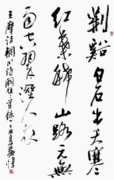 荆谿白石出天寒
紅葉稀山路元無
雨空翠溼人衣
王摩詰